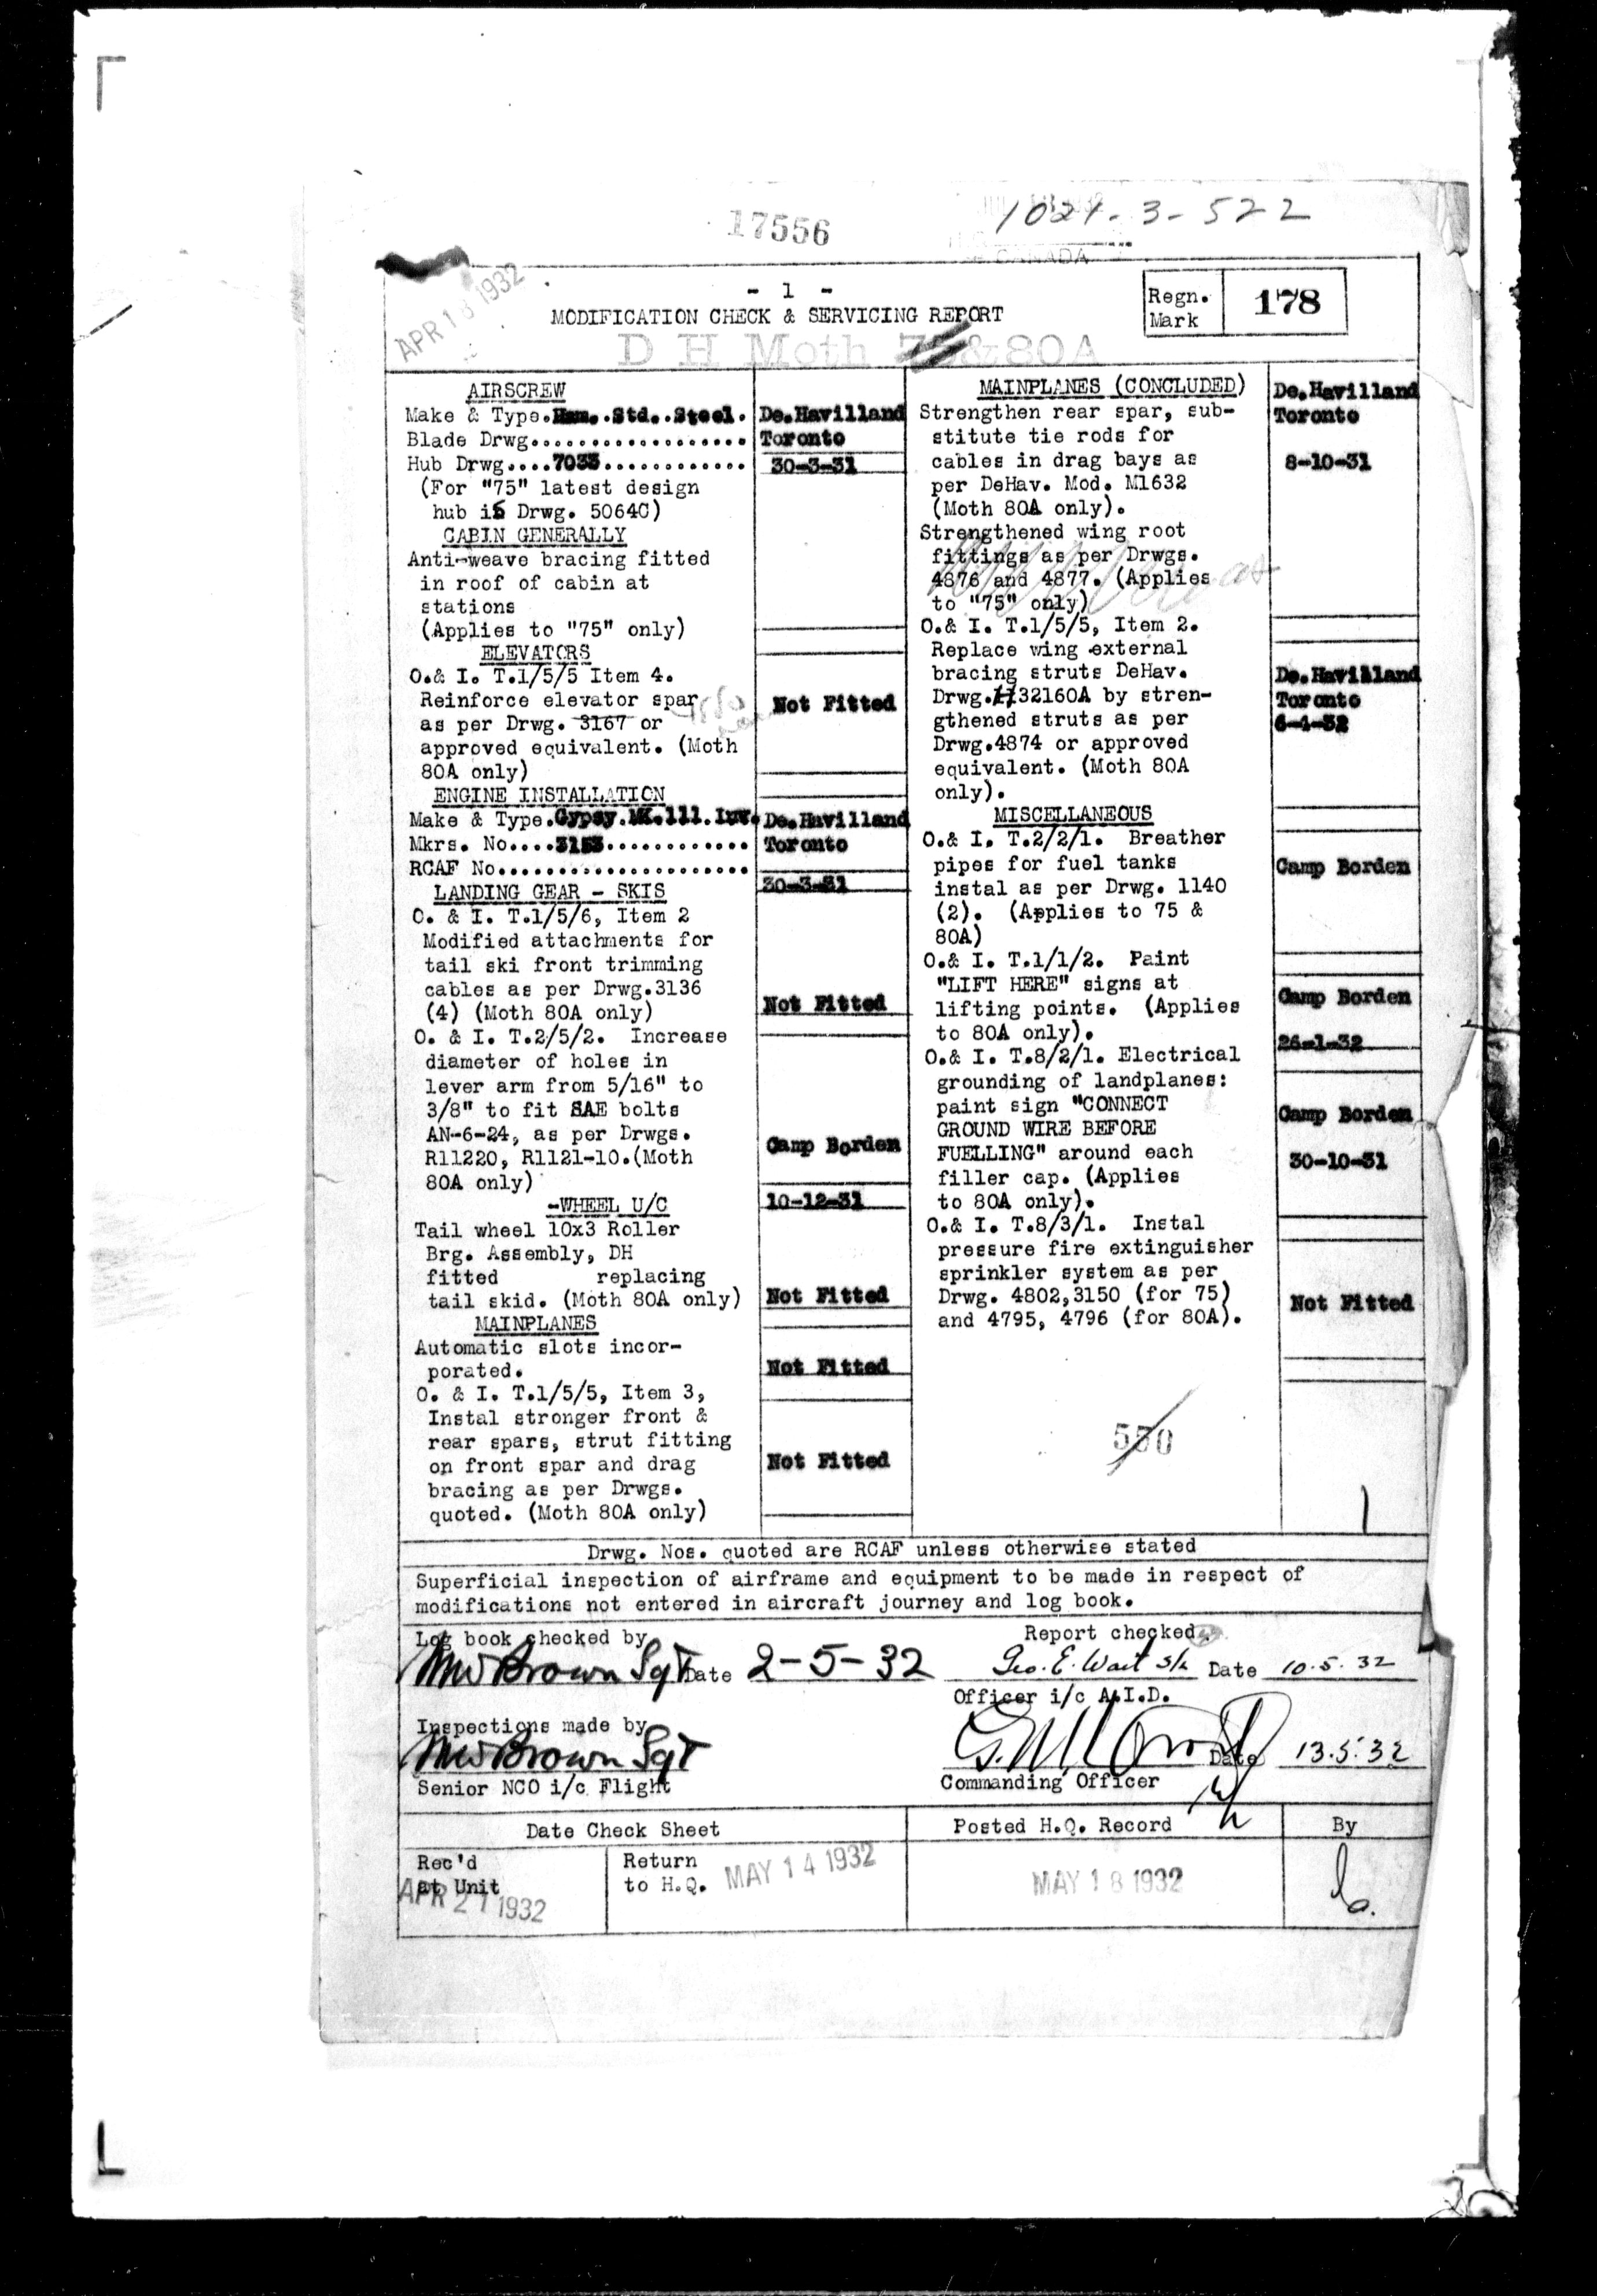 17556
1021-3-522
CANADA
APR 18 1932
- 1 -
MODIFICATION CHECK & SERVICING REPORT
D H Moth 75&80A
Regn.
Mark
178
AIRSCREW
Make & Type.Ham..Std..Steel.
Blade Drwg..................
Hub Drwg....7033............
(For "75" latest design
hub is Drwg. 5064C)
De.Havilland
Toronto
30-3-31
CABIN GENERALLY
Anti-weave bracing fitted
in roof of cabin at
stations
(Applies to "75" only)
ELEVATORS
O.& I. T.1/5/5 Item 4.
Reinforce elevator spar
as per Drwg. 3167 or
approved equivalent. (Moth
80A only)
Not Fitted
ENGINE INSTALLATION
Make & Type.Gypsy.MK.111.Inv.
Mkrs. No....3153............
RCAF No.....................
De.Havilland
Toronto
30-3-31
LANDING GEAR - SKIS
O. & I. T.1/5/6, Item 2
Modified attachments for
tail ski front trimming
cables as per Drwg.3136
(4) (Moth 80A only)
Not Fitted
O. & I. T.2/5/2. Increase
diameter of holes in
lever arm from 5/16" to
3/8" to fit SAE bolts
AN-6-24, as per Drwgs.
R11220, R1121-10.(Moth
80A only)
Camp Borden
10-12-31
-WHEEL U/C
Tail wheel 10x3 Roller
Brg. Assembly, DH
fitted replacing
tail skid. (Moth 80A only)
Not Fitted
MAINPLANES
Automatic slots incor-
porated.
Not Fitted
O. & I. T.1/5/5, Item 3,
Instal stronger front &
rear spars, strut fitting
on front spar and drag
bracing as per Drwgs.
quoted. (Moth 80A only)
Not Fitted
MAINPLANES (CONCLUDED)
Strengthen rear spar, sub-
stitute tie rods for
cables in drag bays as
per DeHav. Mod. M1632
(Moth 80A only).
De.Havilland
Toronto
8-10-31
Strengthened wing root
fittings as per Drwgs.
4876 and 4877. (Applies
to "75" only)
O.& I. T.1/5/5, Item 2.
Replace wing external
bracing struts DeHav.
Drwg.H32160A by stren-
gthened struts as per
Drwg.4874 or approved
equivalent. (Moth 80A
only).
De.Havilland
Toronto
6-4-32
MISCELLANEOUS
O.& I. T.2/2/1. Breather
pipes for fuel tanks
instal as per Drwg. 1140
(2). (Applies to 75 &
80A)
Camp Borden
O.& I. T.1/1/2. Paint
"LIFT HERE" signs at
lifting points. (Applies
to 80A only).
Camp Borden
26-1-32
O.& I. T.8/2/1. Electrical
grounding of landplanes:
paint sign "CONNECT
GROUND WIRE BEFORE
FUELLING" around each
filler cap. (Applies
to 80A only).
Camp Borden
30-10-31
O.& I. T.8/3/1. Instal
pressure fire extinguisher
sprinkler system as per
Drwg. 4802,3150 (for 75)
and 4795, 4796 (for 80A).
Not Fitted
550
Drwg. Nos. quoted are RCAF unless otherwise stated
Superficial inspection of airframe and equipment to be made in respect of
modifications not entered in aircraft journey and log book.
Log book checked by
MW Brown Sgt Date 2-5-32
Report checked.
Geo. E. Wait S/L Date 10.5.32
Officer i/c A.I.D.
Inspections made by
MW Brown Sgt
Senior NCO i/c Flight
Date 13.5.32
Commanding Officer
Date Check Sheet
Posted H.Q. Record
By
Rec'd
at Unit
APR 27 1932
Return
to H.Q.
MAY 14 1932
MAY 18 1932